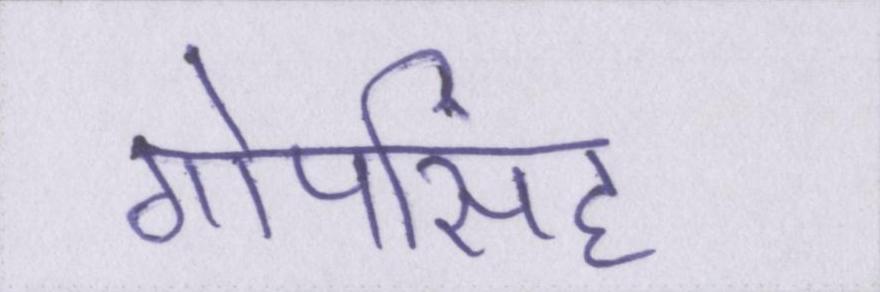 गोपसिंह